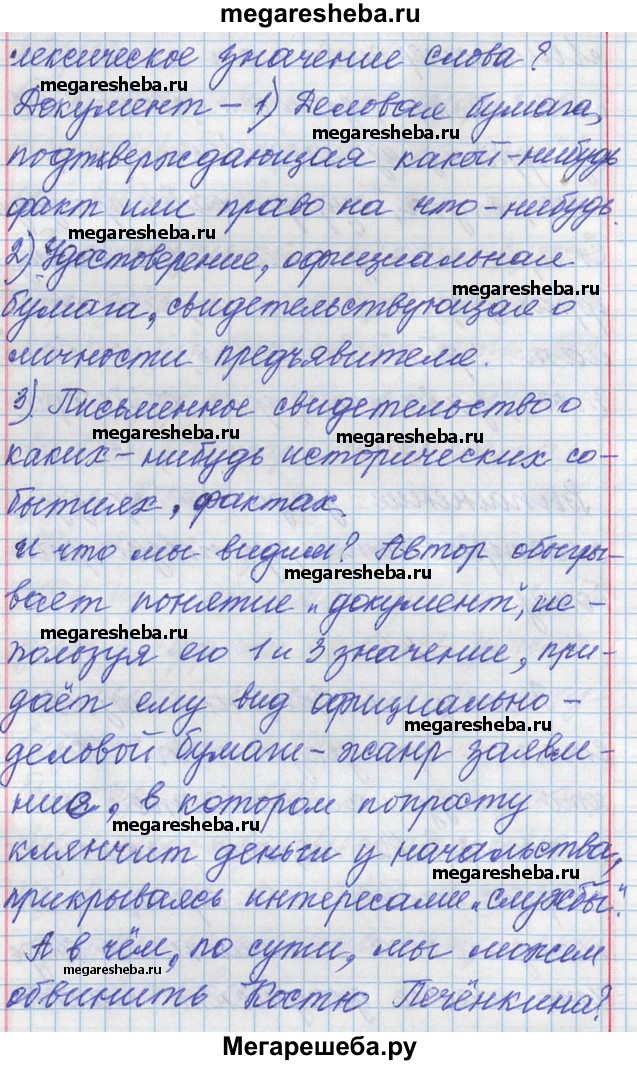 megaresheba.ru
лексическое значение слова?
megaresheba.ru
Документ – 1) Деловая бумага,
megaresheba.ru
подтверждающая какой-нибудь
факт или право на что-нибудь.
megaresheba.ru
2) Удостоверение, официальная
megaresheba.ru
бумага, свидетельствующая о
личности предъявителя.
3) Письменное свидетельство о
megaresheba.ru
megaresheba.ru
каких-нибудь исторических со-
бытиях, фактах.
И что мы видим? Автор обыгры-
megaresheba.ru
вает понятие „документ“, ис-
megaresheba.ru
пользуя его 1 и 3 значение, при-
даёт ему вид официально-
megaresheba.ru
деловой бумаги – жанр заявле-
ния, в котором попросту
megaresheba.ru
клянчит деньги у начальства,
megaresheba.ru
прикрываясь интересами „службы“.
А в чём, по сути, мы можем
megaresheba.ru
обвинить Костю Печёнкина?
Мегарешеба.ру